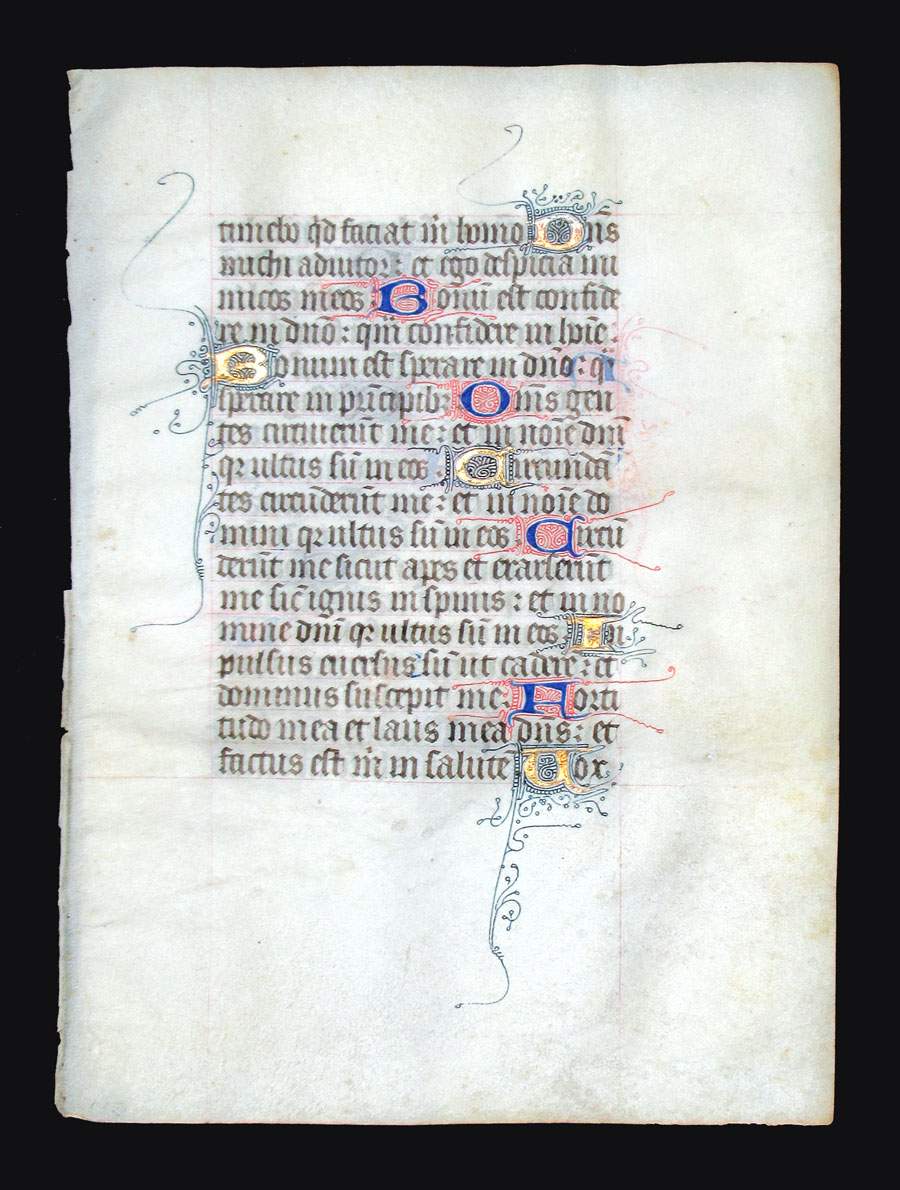 timebo q̇d faciat m̄ homo Dn̄s
michi adiutor: et ego despicia ini
micos meos Bonū est confide
re in dn̄o: qm̄ confidere in hoīe:
Bonum est sperare in dn̄o: qͣ
sperare in prīcipibȝ Om̄s gen
tes circuierūt me: et in noīe dn̄i
qꝛ ultus sū in eos Circundā
tes circūderūt me: et in noīe do
mini qꝛ ultus sū in eos Circū
derūt me sicut apes et exarserūt
me sic̄ ignis in spinis: et in no
mine dn̄i qꝛ ultus sū in eos In
pulsus euersus sū ut caderē: et
dominus suscepit me: Forti
tudo mea et laus mea dn̄s: et
factus est m̄ in salutē Vox